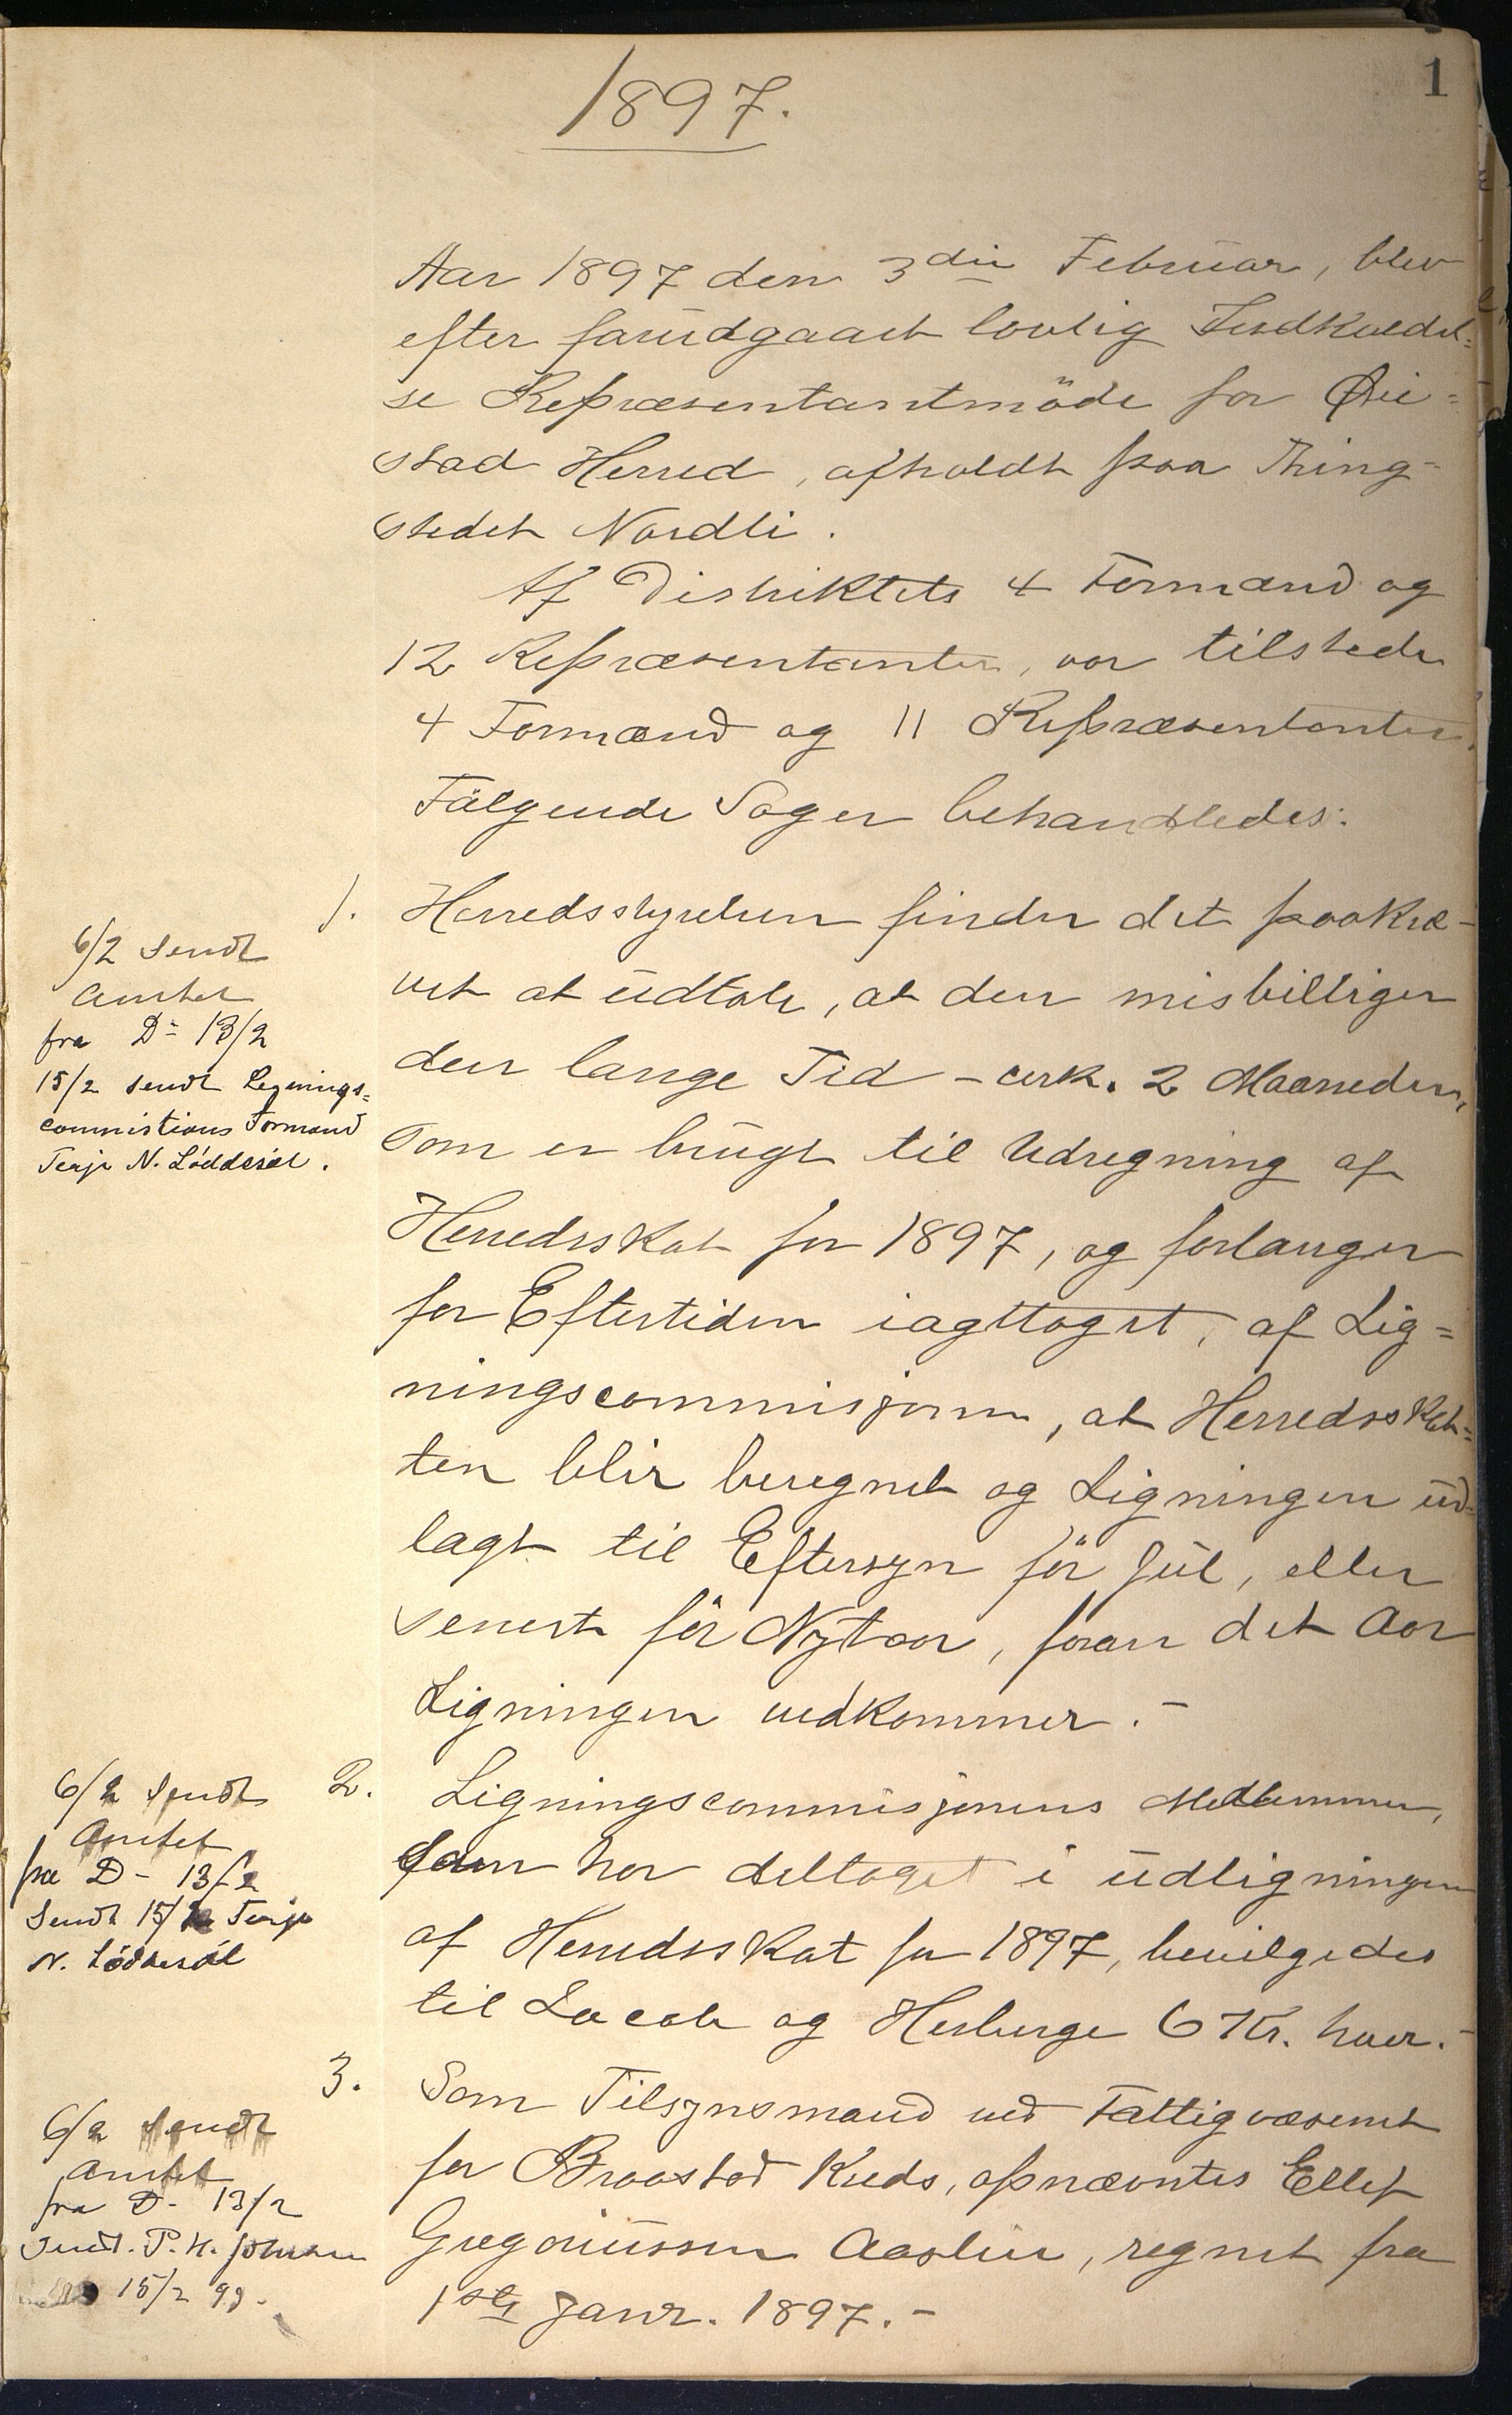 1
1897.
Aar 1897 den 3die Februar, blev
efter forudgaaet lovlig Indkaldel=
se Repræsentantmöde for Øie=
stad Herred, afholdt paa Thing-
stedet Nordli.
Af Distriktets 4 Formænd og
12 Repræsentanter, var tilstede
4 Formænd og 11 Repræsentanter.
Fölgende Sager behandledes:
1. Herredsstyrelsen finder det paakræ-
vet at udtale, at den misbilliger
den lange Tid - cirk. 2 Maaneder,
som er brugt til Udregning af
Herredsskat for 1897, og forlanger
for Eftertiden iagttaget, af Lig=
ningscommisjonen, at Herredsskat=
ten blir beregnet og Ligningen ud=
lagt til Eftersyn för Jul, eller
senest för Nytaar, foran det Aar
Ligningen vedkommer. -
6/2 sendt
Amtet
fra D= 13/2
15/2 sendt Legnings=
commistions Formand
Terje N. Löddesöl.
2. Ligningscommisjonens Medlemmer,
som har deltaget i udligningen
af Herredsskat for 1897, bevilgedes
til Locale og Herberge 6 Kr. hver. -
6/2 sendt
Amtet
fra D- 13/2
Sendt 15/2 Terje
N. Löddesöl
3. Som Tilsynsmand ved Fattigvæsenet
for Braastad Kreds, opnævntes Ellef
Gregoriussen Aaslien, regnet fra
1ste Janr. 1897. -
6/2 sendt
Amtet
fra D- 13/2
Sendt. P. H. Johnsen
15/2 99.